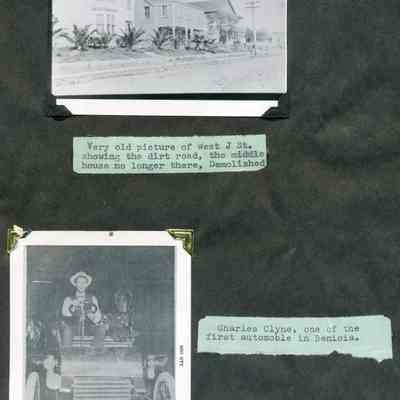 Very old picture of West J St.
showing the dirt road, the middle
house no longer there, Demolished
Charles Clyne, one of the
first automoble in Benicia.